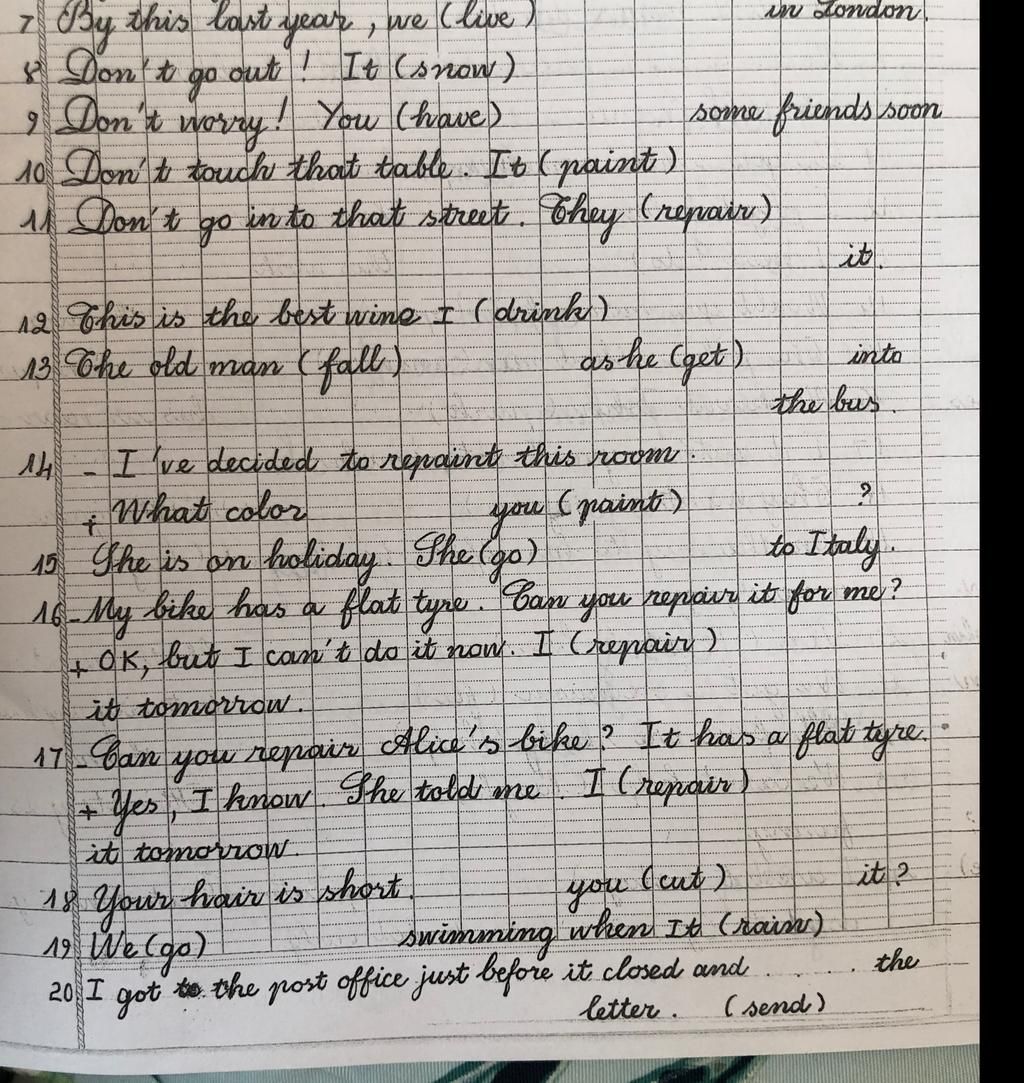 7 By this last year, we (live) in London.
8 Don't go out! It (snow)
9 Don't worry! You (have) some friends soon
10 Don't touch that table. It (paint)
11 Don't go into that street. They (repair)
it.
12 This is the best wine I (drink)
13 The old man (fall) as he (get) into
the bus.
14 - I've decided to repaint this room.
+ What color you (paint) ?
15 She is on holiday. She (go) to Italy.
16 - My bike has a flat tyre. Can you repair it for me?
+ OK, but I can't do it now. I (repair)
it tomorrow.
17 - Can you repair Alice's bike? It has a flat tyre.
+ Yes, I know. She told me. I (repair)
it tomorrow.
18 Your hair is short. you (cut) it?
19 We (go) swimming when It (rain)
20 I got to the post office just before it closed and ...... the
letter. (send)